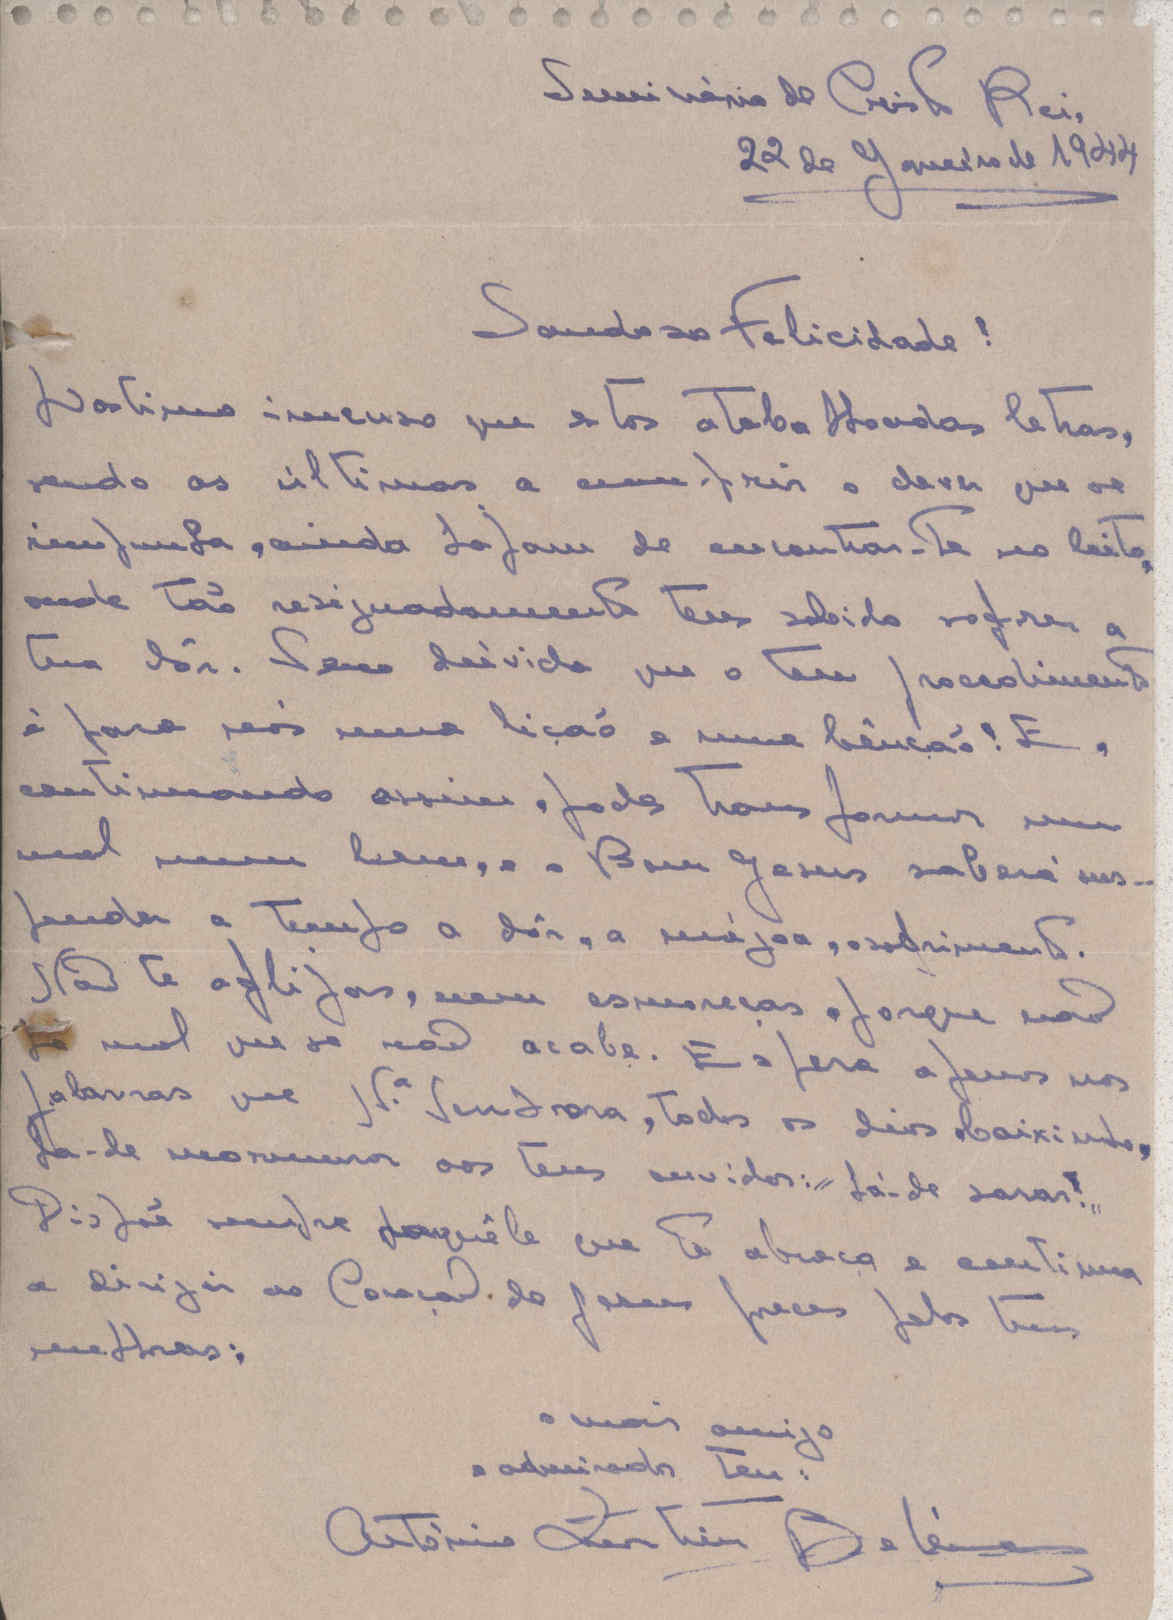 Seminário de Cristo Rei,
22 de Janeiro de 1944
Saudosa Felicidade!
Lastimo imenso que estas atabalhoadas letras,
sendo as últimas a cumprir o dever que se
impunha, ainda hajam de encontrar-te no leito,
onde tão resignadamente tens sabido sofrer a
tua dôr. Sem dúvida que o teu procedimento
é para nós uma lição e uma bênção! E,
continuando assim, podes transformar um
mal num bem, e o Bom Jesus saberá sus-
pender a tempo a dôr, a mágoa, o sofrimento.
Não te aflijas, nem esmoreças, porque não
há mal que se não acabe. Espera apenas nas
palavras que N.ª Senhora, todos os dias, baixinho,
há-de murmurar aos teus ouvidos: "há-de sarar!"
Dispõe sempre daquêle que te abraça e continua
a dirigir ao Coração de Jesus preces pelas tuas
melhoras;
o mais amigo
e admirador teu:
António Belém